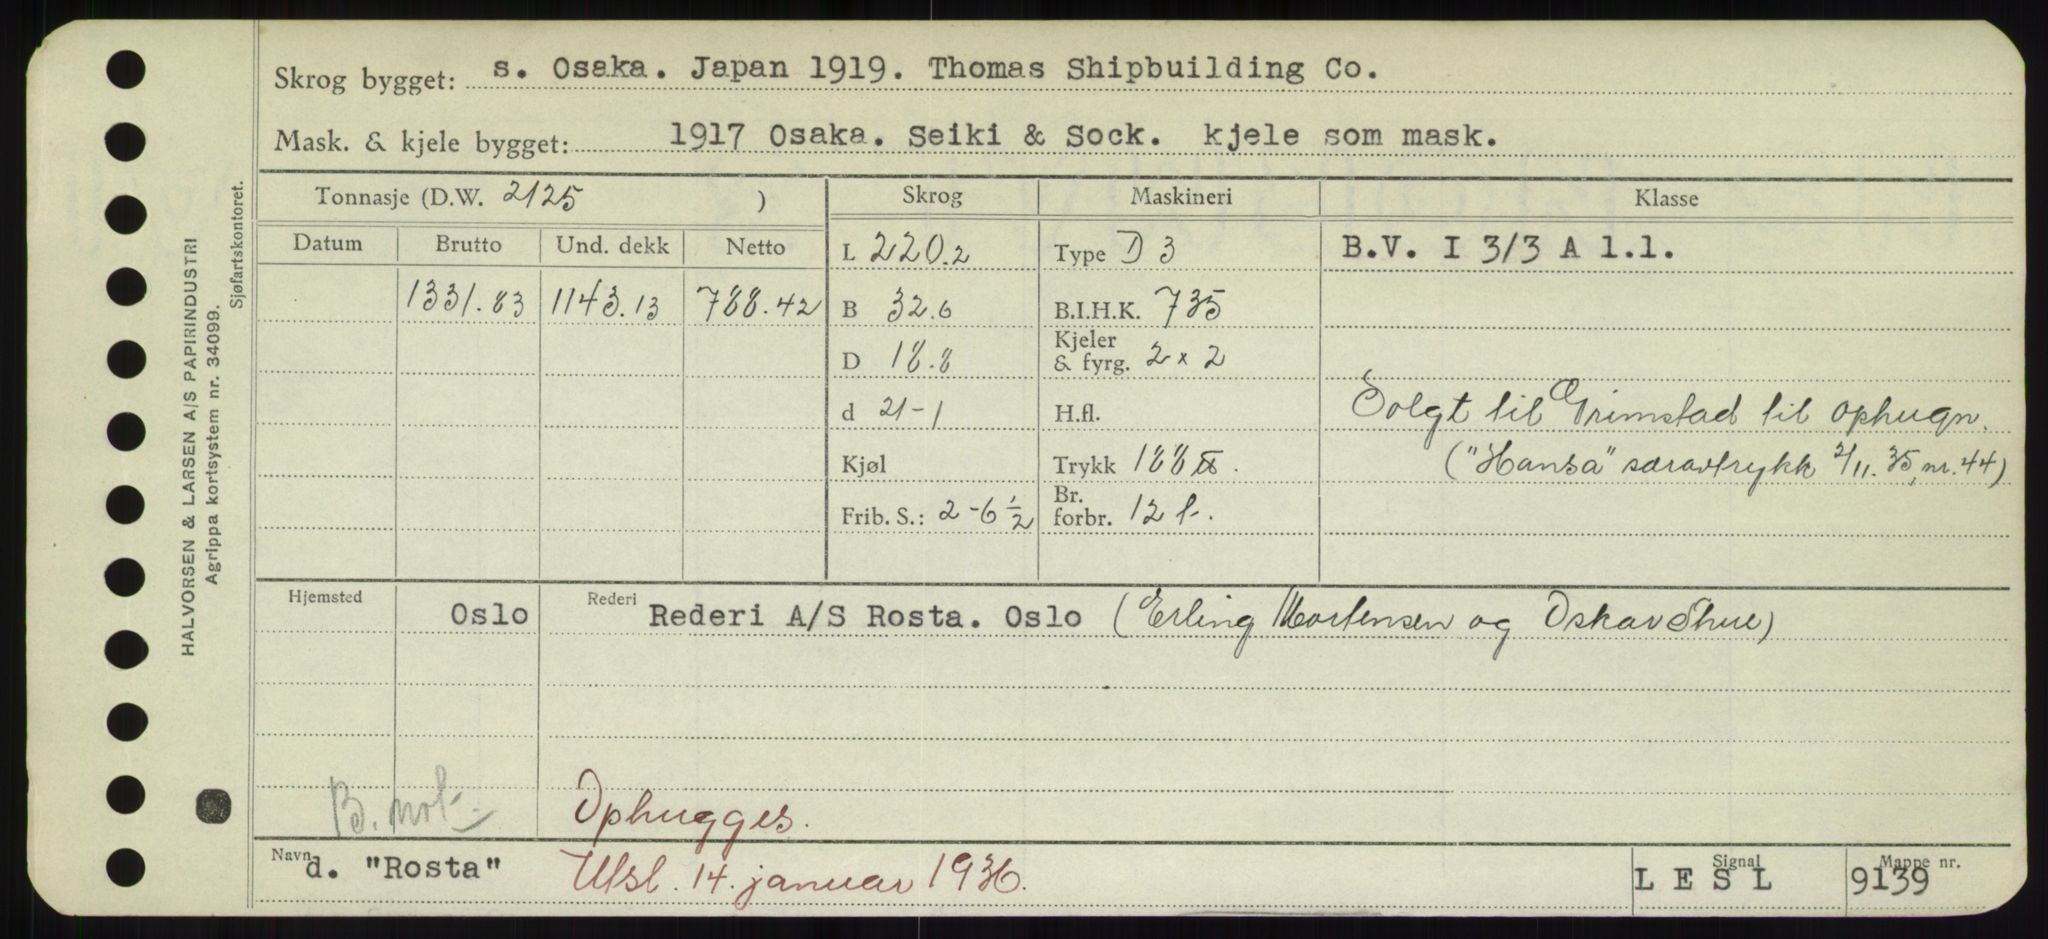 Skrog bygget: s. Osaka. Japan 1919. Thomas Shipbuilding Co.
Mask. & kjele bygget: 1917 Osaka. Seiki & Sock. kjele som mask.
Tonnasje (D.W. 2125 ) Skrog Maskineri Klasse
Datum Brutto Und. dekk Netto L 220.2 Type D 3 B.V. I 3/3 A 1.1.
1331.83 1143.13 788.42 B 32.6 B.I.H.K. 735
D 18.8 Kjeler & fyrg. 2 x 2
d 21-1 H.fl. Solgt til Grimstad til ophugn.
Kjøl Trykk 188 ℔. ("Hansa" særavtrykk 2/11.35, nr. 44)
Frib. S.: 2-6 ½ Br. forbr. 12 t.
Hjemsted Oslo Rederi Rederi A/S Rosta. Oslo (Erling Mortensen og Oskar Thue)
B. not. Ophugges.
Navn d. "Rosta" Utsl. 14. januar 1936. Signal L E S L Mappe nr. 9139
HALVORSEN & LARSEN A/S PAPIRINDUSTRI
Agrippa kortsystem nr. 34099.
Sjøfartskontoret.